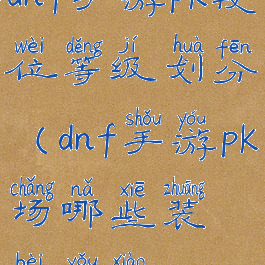 dnf手游pk段
wèi děng jí huà fēn
位等级划分
shǒu yóu
（dnf手游pk
chǎng nǎ xiē zhuāng
场哪些装
bèi yǒu xiào